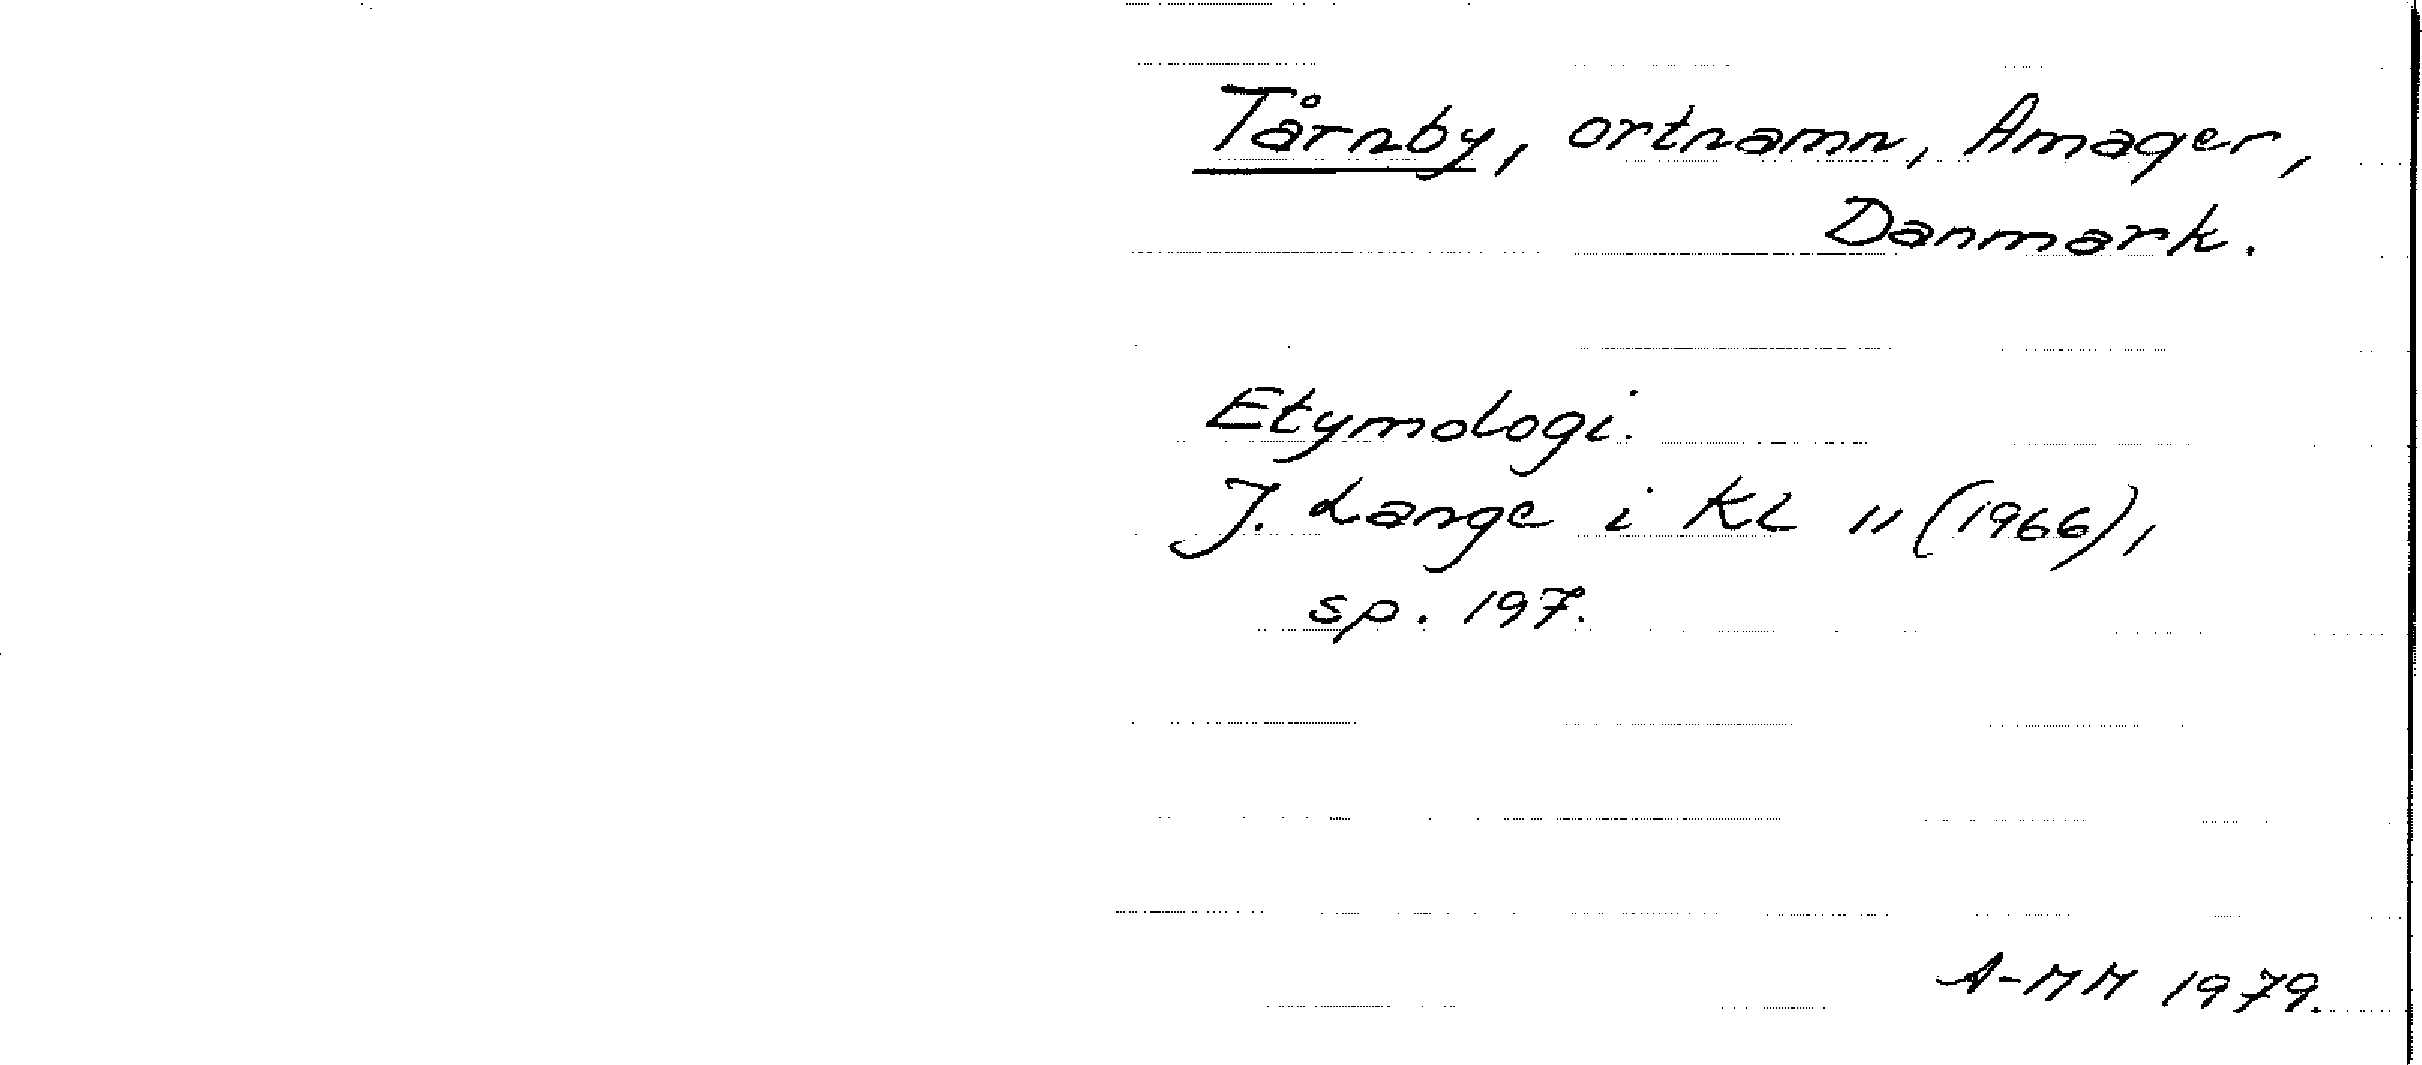 Tårnby, ortnamn, Amager,
Danmark.
Etymologi.
J. Lange i KL 11 (1966),
sp. 197.
A-MM 1979.